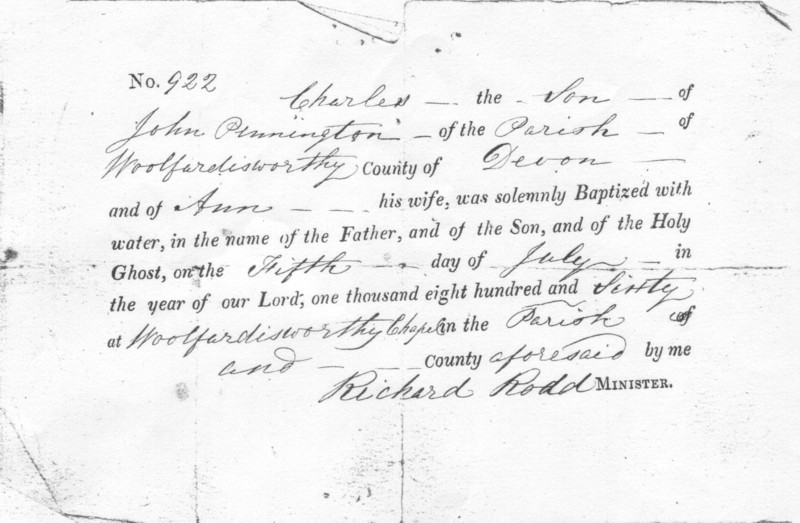 No. 922
Charles — the - Son — of
John Pennington — of the Parish — of
Woolfardisworthy County of Devon —
and of Ann — — his wife, was solemnly Baptized with
water, in the name of the Father, and of the Son, and of the Holy
Ghost, on the Fifth — day of July — in
the year of our Lord, one thousand eight hundred and Sixty
at Woolfardisworthy Chapel in the Parish of
and — — County aforesaid by me
Richard Rodd MINISTER.